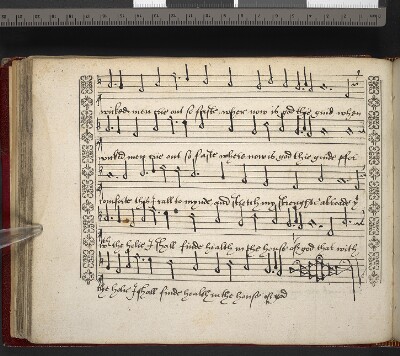 wicked men crie out so faste where now is god thie guid when
wicked men crie out so faste where now is god thie guide
comforte this I call to mynde and stretch my strength abrode
the holie I shall finde health in the house of god that with
the holie I shall finde health in the house of god